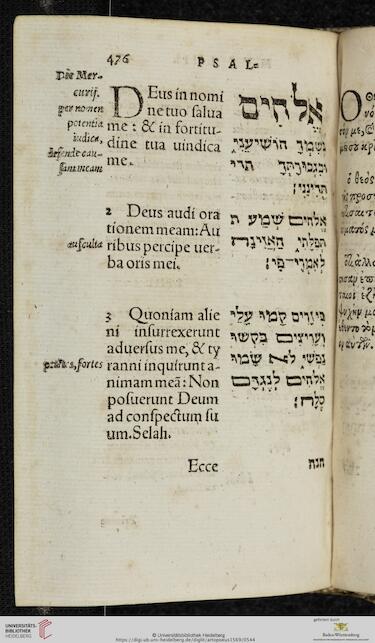 476
PSAL=
Die Mer-
curij.
per nomen
potentia
iudica,
defende cau-
sam meam
DEus in nomi
ne tuo salua
me: & in fortitu-
dine tua uindica
me.
אֱלֹהִים
בְּשִׁמְךָ הוֹשִׁיעֵנִי
וּבִגְבוּרָתְךָ
תְדִינֵנִי׃
ausculta
2 Deus audi ora
tionem meam: Au
ribus percipe uer-
ba oris mei.
אֱלֹהִים שְׁמַע ת
תְּפִלָּתִי הַאֲזִינָה
לְאִמְרֵי־פִי׃
fortes
3 Quoniam alie
ni insurrexerunt
aduersus me, & ty
ranni inquirunt a-
nimam meā: Non
posuerunt Deum
ad conspectum su
um. Selah.
כִּי זָרִים קָמוּ עָלַי
וְעָרִיצִים בִּקְשׁוּ
נַפְשִׁי לֹא שָׂמוּ
אֱלֹהִים לְנֶגְדָּם
סֶלָה׃
Ecce
הנה
UNIVERSITÄTS-
BIBLIOTHEK
HEIDELBERG
© Universitätsbibliothek Heidelberg
gefördert durch
Baden-Württemberg